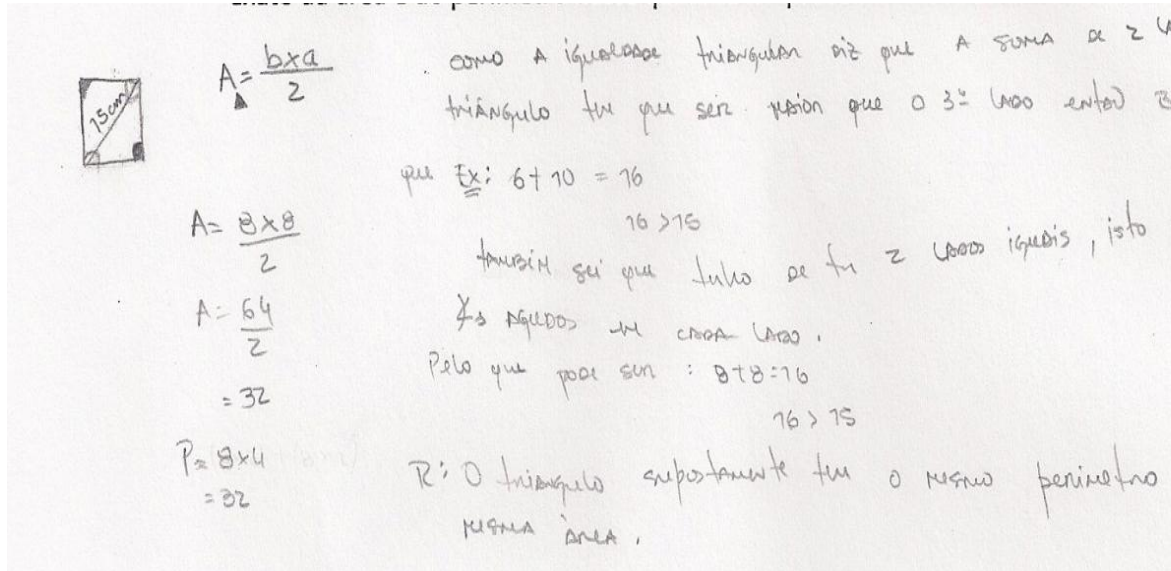 15cm
A = b×a
2
como a igualdade triangular diz que a soma de 2
triângulo tem que ser maior que o 3º lado então
que Ex: 6+10 = 16
16 > 15
A = 8×8
2
também sei que tenho de ter 2 lados iguais, isto
A = 64
2
∡s agudos em cada lado.
Pelo que pode ser : 8+8=16
= 32
16 > 15
P = 8×4
= 32
R: O triângulo supostamente tem o mesmo perimetro
mesma área.